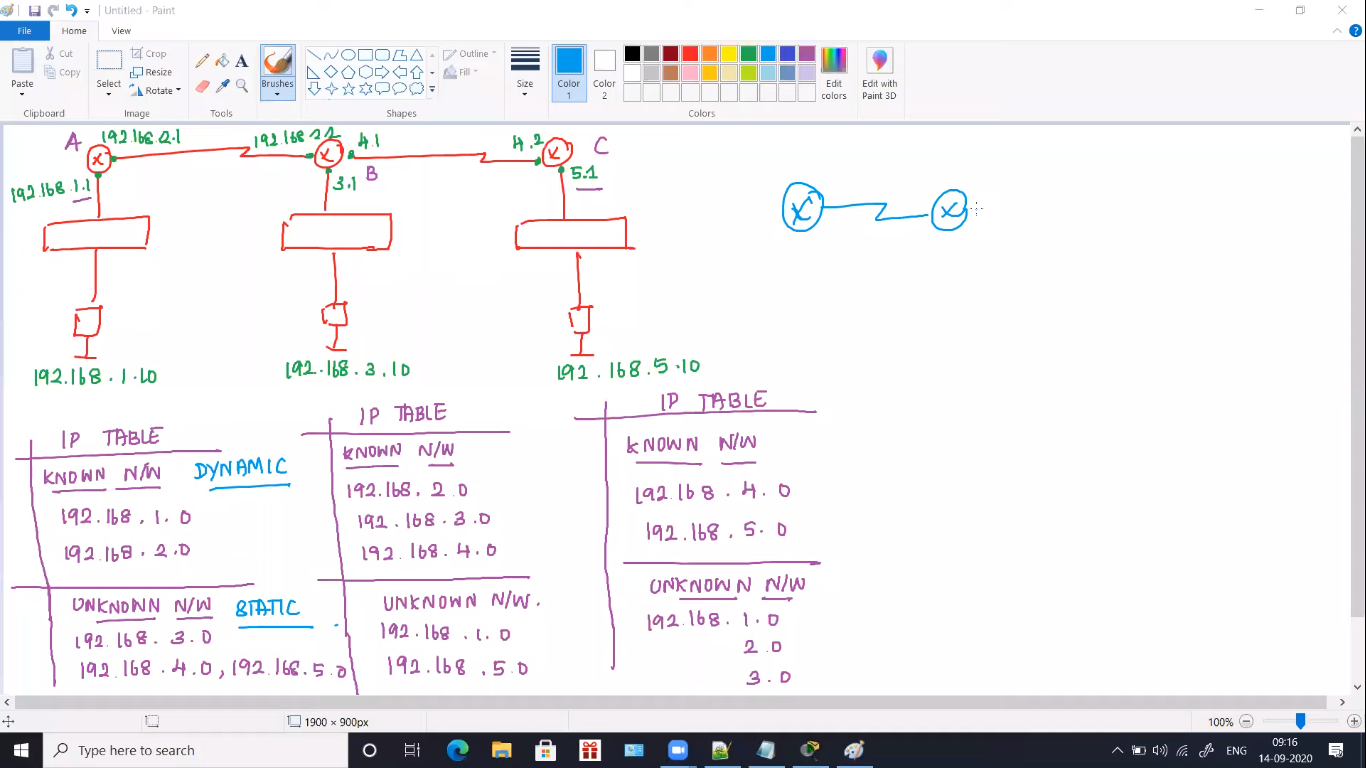 Untitled - Paint
File
Home
View
Paste
Cut
Copy
Clipboard
Select
Crop
Resize
Rotate
Image
Tools
Brushes
Shapes
Outline
Fill
Size
Color 1
Color 2
Edit colors
Edit with Paint 3D
Colors
A
192.168.2.1
192.168.2.2
4.1
4.2
C
X
X
X
192.168.1.1
3.1
B
5.1
X
X
192.168.1.10
192.168.3.10
192.168.5.10
IP TABLE
KNOWN N/W
DYNAMIC
192.168.1.0
192.168.2.0
UNKNOWN N/W
STATIC
192.168.3.0
192.168.4.0, 192.168.5.0
IP TABLE
KNOWN N/W
192.168.2.0
192.168.3.0
192.168.4.0
UNKNOWN N/W.
192.168.1.0
192.168.5.0
IP TABLE
KNOWN N/W
192.168.4.0
192.168.5.0
UNKNOWN N/W
192.168.1.0
2.0
3.0
1900 × 900px
100%
Type here to search
ENG
09:16
14-09-2020